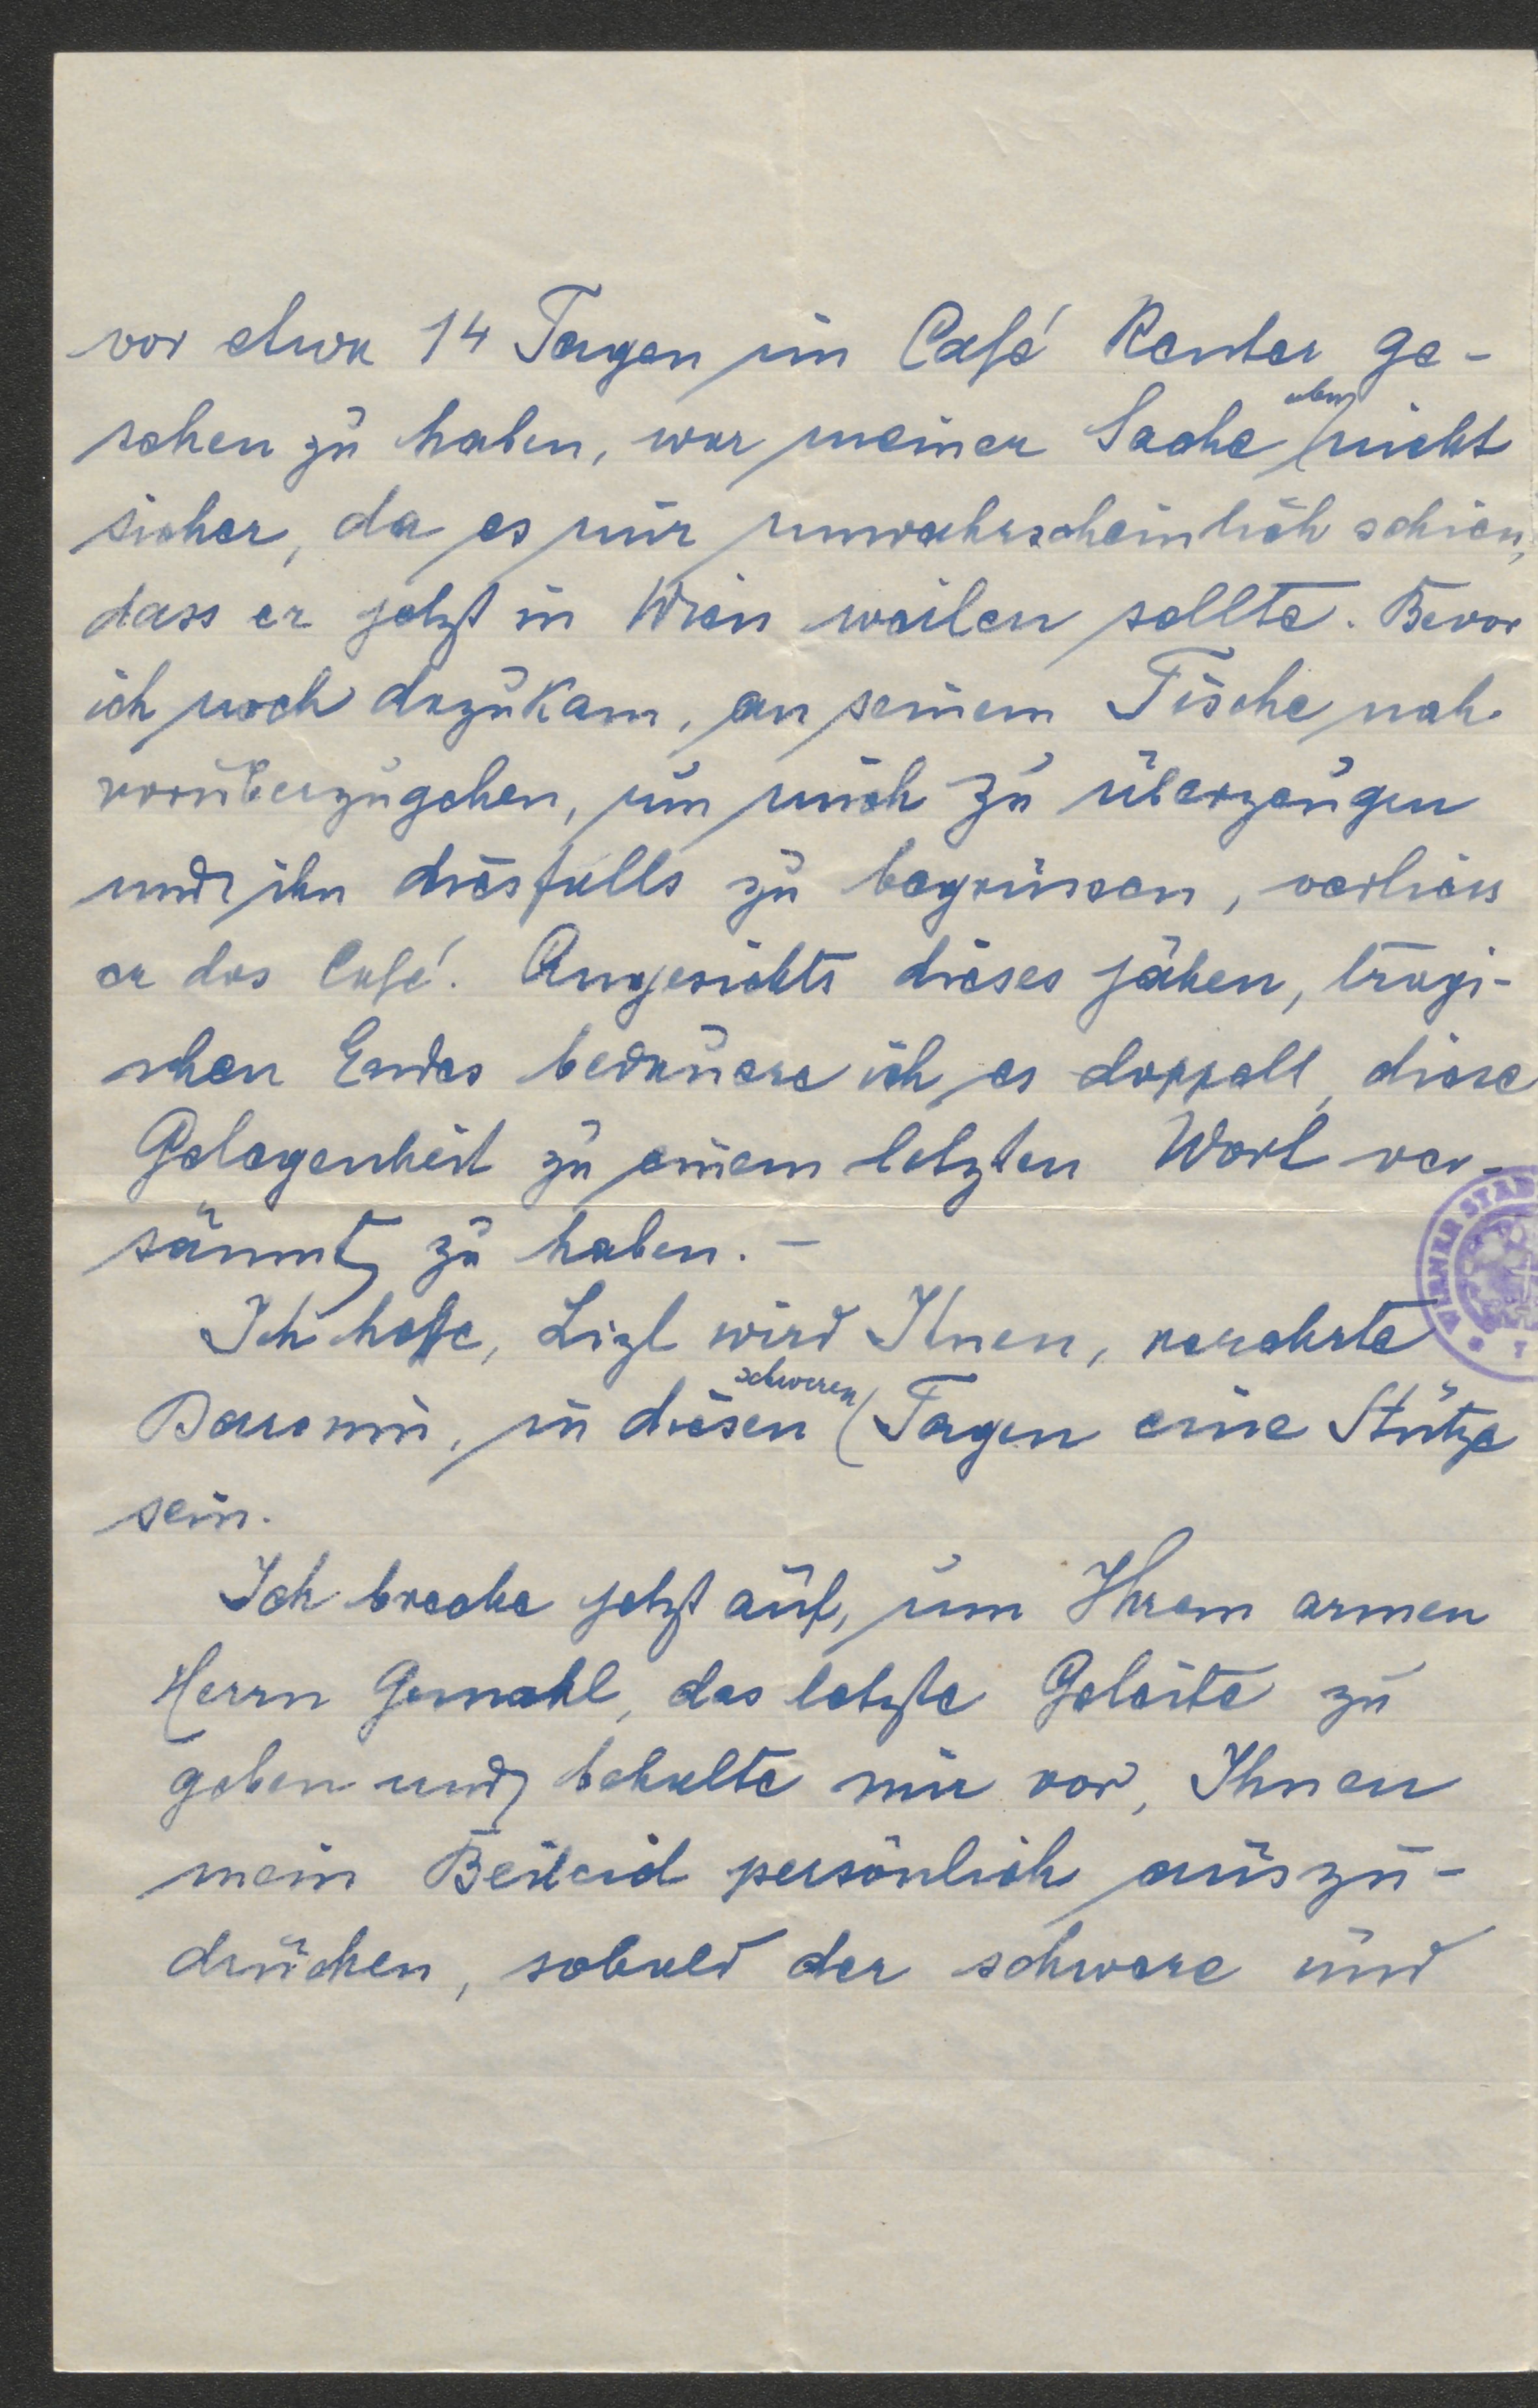 vor etwa 14 Tagen im Café Reuter ge-
sehen zu haben, war meiner Sache aber nicht
sicher, da es mir unwahrscheinlich schien,
dass er jetzt in Wien weilen sollte. Bevor
ich noch dazukam, an seinem Tische nah
vorüberzugehen, um mich zu überzeugen
und ihn diesfalls zu begrüssen, verliess
er das Café. Angesichts dieses jähen, tragi-
schen Endes bedauere ich es doppelt, diese
Gelegenheit zu einem letzten Wort ver-
säumt zu haben. –
Ich hoffe, Lizl wird Ihnen, verehrte
Baronin, in diesen schweren Tagen eine Stütze
sein.
Ich breche jetzt auf, um Ihrem armen
Herrn Gemahl, das letzte Geleite zu
geben und behalte mir vor, Ihnen
mein Beileid persönlich auszu-
drücken, sobald der schwere und
WIENER